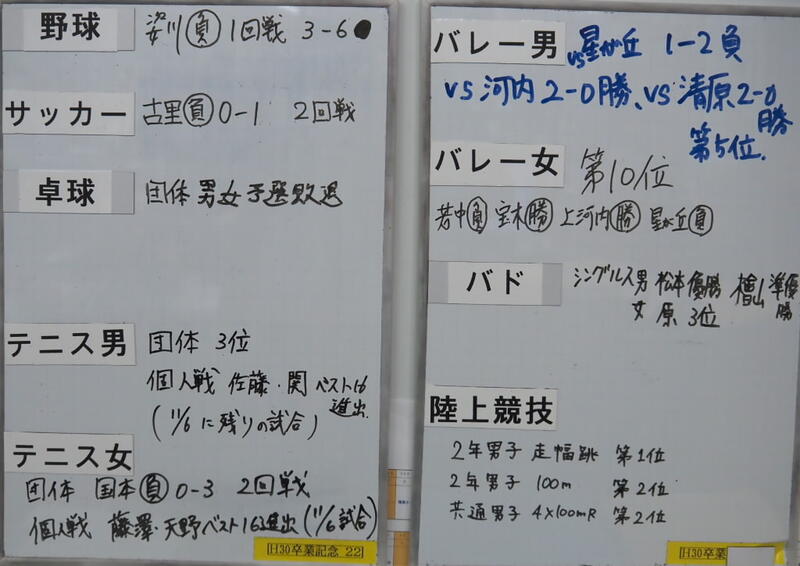 野球 姿川 負 1回戦 3-6●
サッカー 古里 負 0-1 2回戦
卓球 団体 男女予選敗退
テニス男 団体 3位
個人戦 佐藤・関 ベスト16
進出
(11/6 に残りの試合)
テニス女
団体 国本 負 0-3 2回戦
個人戦 藤澤・天野ベスト16進出 (11/6試合)
H30卒業記念 22
バレー男 vs星が丘 1-2負
vs河内2-0勝、vs清原2-0
勝
第5位.
バレー女 第10位
若中負 宝木勝 上河内勝 星が丘負
バド シングルス男 松本優勝 檜山 準優
勝
女 原 3位
陸上競技
2年男子 走幅跳 第1位
2年男子 100m 第2位
共通男子 4×100mR 第2位
H30卒業